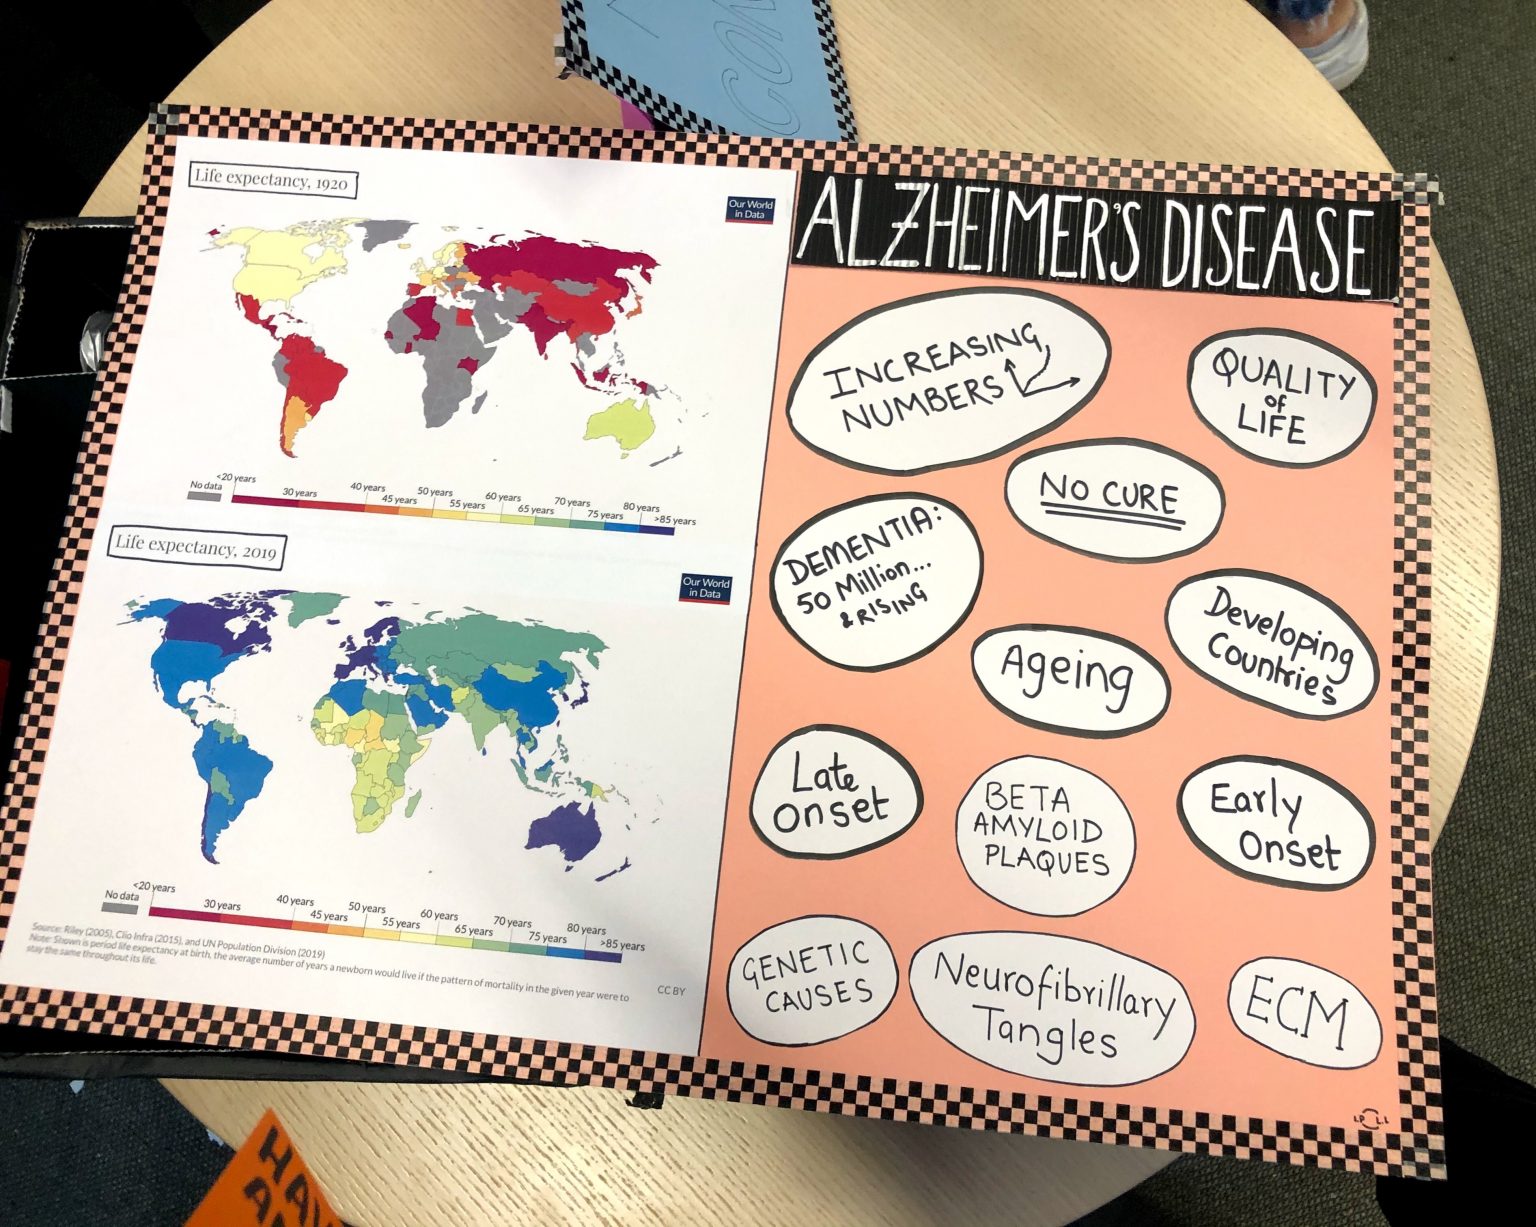 CON
Life expectancy, 1920
Our World
in Data
No data
<20 years
30 years
40 years
45 years
50 years
55 years
60 years
65 years
70 years
75 years
80 years
>85 years
Life expectancy, 2019
Our World
in Data
No data
<20 years
30 years
40 years
45 years
50 years
55 years
60 years
65 years
70 years
75 years
80 years
>85 years
Source: Riley (2005), Clio Infra (2015), and UN Population Division (2019)
Note: Shown is period life expectancy at birth, the average number of years a newborn would live if the pattern of mortality in the given year were to
stay the same throughout its life.
CC BY
ALZHEIMER'S DISEASE
INCREASING
NUMBERS
QUALITY
of
LIFE
NO CURE
DEMENTIA:
50 Million...
& RISING
Developing
Countries
Ageing
Late
onset
BETA
AMYLOID
PLAQUES
Early
Onset
GENETIC
CAUSES
Neurofibrillary
Tangles
ECM
HAV